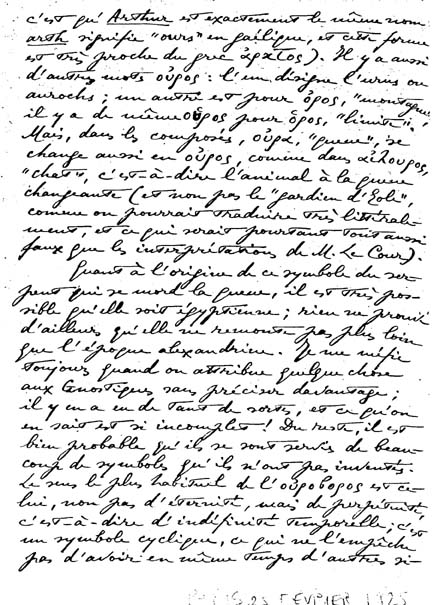 c'est qu'Arthur est exactement le même nom
arth signifie "ours" en gaélique, et cette forme
est très proche du grec ἄρκτος). Il y a aussi
d'autres mots οὖρος : l'un désigne l'urus ou
aurochs ; un autre est pour ὄρος, "montagne",
il y a de même οὖρος pour ὅρος, "limite".
Mais, dans les composés, οὐρα, "queue", se
change aussi en οὖρος, comme dans αἴλουρος,
"chat", c'est-à-dire l'animal à la queue
changeante (et non pas le "gardien d'Eole",
comme on pourrait traduire très littérale-
ment, et ce qui serait pourtant tout aussi
faux que les interprétations de M. Le Cour).
Quant à l'origine de ce symbole du ser-
pent qui se mord la queue, il est très pos-
sible qu'elle soit égyptienne ; rien ne prouve
d'ailleurs qu'elle ne remonte pas plus loin
que l'époque alexandrine. Je me méfie
toujours quand on attribue quelque chose
aux Gnostiques sans préciser davantage ;
il y en a eu de tant de sortes, et ce qu'on
en sait est si incomplet ! Du reste, il est
bien probable qu'ils se sont servis de beau-
coup de symboles qu'ils n'ont pas inventés.
Le sens le plus habituel de l'οὐροβορος est ce-
lui, non pas d'éternité, mais de perpétuité,
c'est-à-dire d'indéfinité temporelle ; c'est
un symbole cyclique, ce qui ne l'empêche
pas d'avoir en même temps d'autres si-
25 FEVRIER 1925